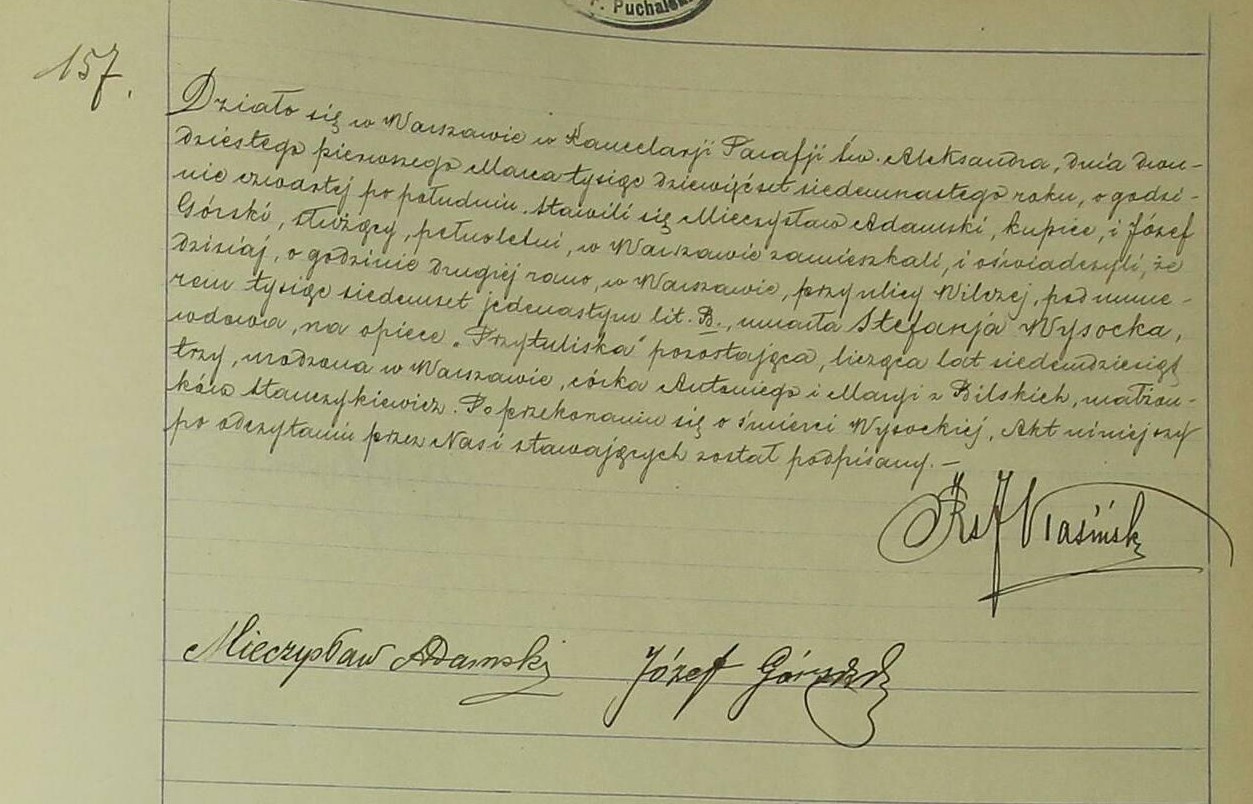 F. Puchalski
157.
Działo się w Warszawie w Kancelarji Parafji Św. Aleksandra, dnia dwu-
dziestego pierwszego Marca tysiąc dziewięćset siedemnastego roku, o godzi-
nie czwartej po południu. Stawili się Mieczysław Adamski, kupiec, i Józef
Górski, służący, pełnoletni, w Warszawie zamieszkali, i oświadczyli, że
dzisiaj, o godzinie drugiej rano, w Warszawie, przy ulicy Wilczej, pod nume-
rem tysiąc siedemset jedenastym lit. B., umarła Stefanja Wysocka,
wdowa, na opiece „Przytuliska" pozostająca, licząca lat siedemdziesiąt
trzy, urodzona w Warszawie, córka Antoniego i Maryi z Bilskich, małżon-
ków Stanczykiewicz. Po przekonaniu się o śmierci Wysockiej, Akt niniejszy
po odczytaniu przez Nas i stawających został podpisany. —
Ks J
Mieczysław Adamski Józef Górski